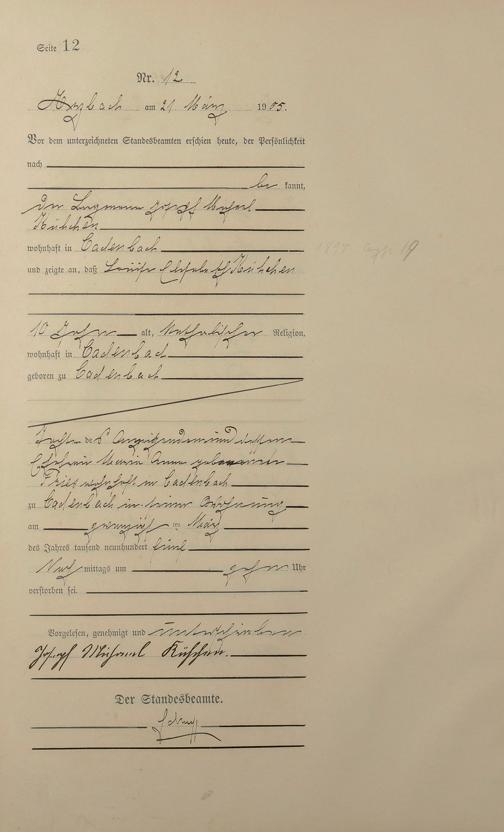 Seite 12
Nr. 12
am 21 März 1905.
Vor dem unterzeichneten Standesbeamten erschien heute, der Persönlichkeit
nach
be kannt,
der Josef
wohnhaft in Cadenbach
und zeigte an, daß Elisabeth
10 Jahre alt, katholischer Religion,
wohnhaft in Cadenbach
geboren zu Cadenbach
Tochter des Anzeigenden und dessen
Ehefrau Maria Anna geborenen
wohnhaft in Cadenbach
zu Cadenbach in seiner Wohnung
am zwanzigsten März
des Jahres tausend neunhundert fünf
Nach mittags um zehn Uhr
verstorben sei.
Vorgelesen, genehmigt und unterschrieben
Josef Michael
Der Standesbeamte.